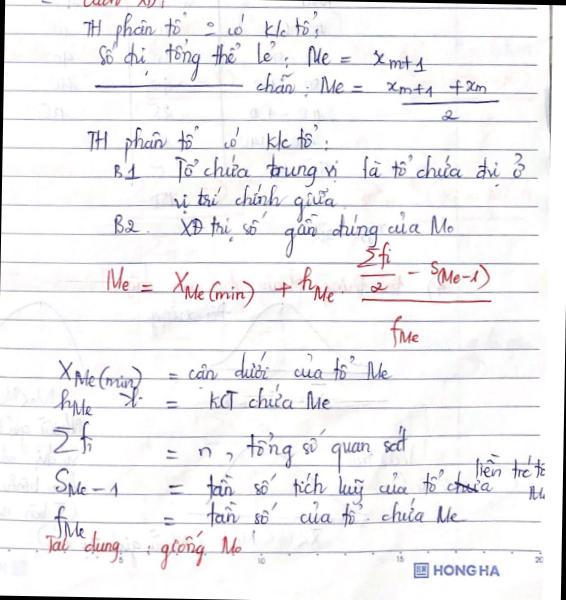 cách XĐ:
TH phân tổ = có k/c tổ:
Số đvị tổng thể lẻ: Me = x_{m+1}
chẵn: Me = (x_{m+1} + x_m) / 2
TH phân tổ có k/c tổ:
B1 Tổ chứa trung vị là tổ chứa đvị ở
vị trí chính giữa
B2. XĐ trị số gần đúng của Mo
Me = X_{Me(min)} + h_{Me} . (Σfi/2 - S_{(Me-1)}) / f_{Me}
X_{Me(min)} = cận dưới của tổ Me
h_{Me} = KCT chứa Me
Σfi = n, tổng số quan sát
S_{Me-1} = tần số tích luỹ của tổ liền trc tổ Me
f_{Me} = tần số của tổ chứa Me
Tác dụng: giống Mo
5 10 15 20
HONG HA